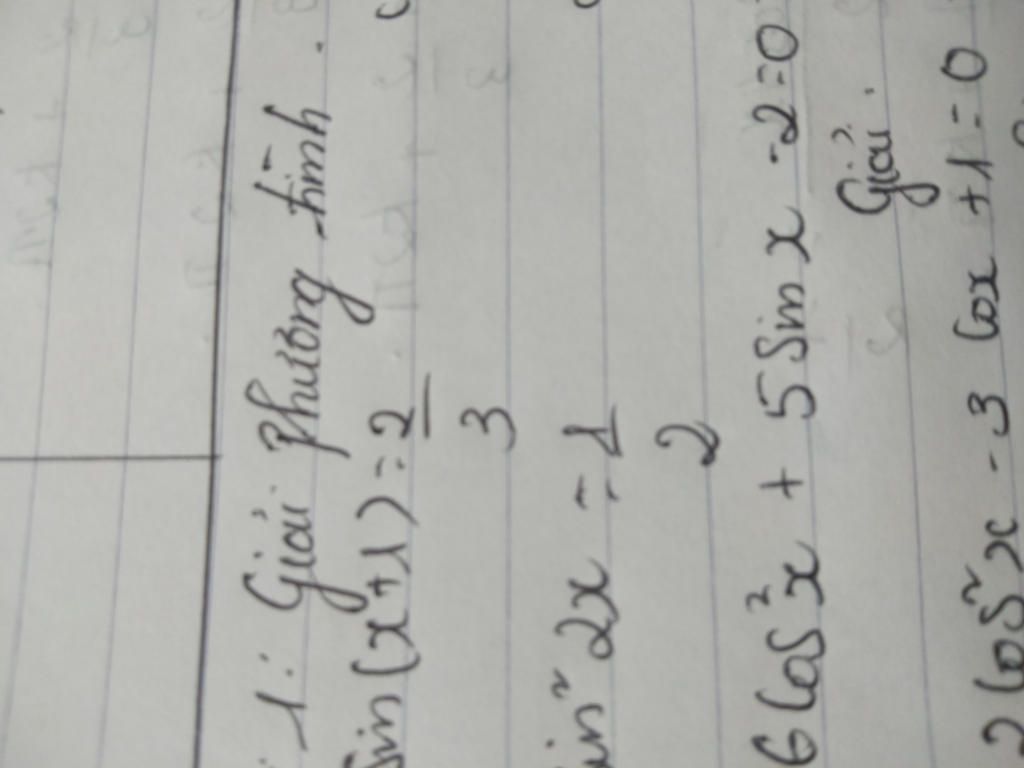 1: Giải phương trình.
Sin(x+1) = 2/3
sin² 2x = 1/2
6 Cos² x + 5 Sin x - 2 = 0
Giải.
2 Cos² x - 3 Cox + 1 = 0